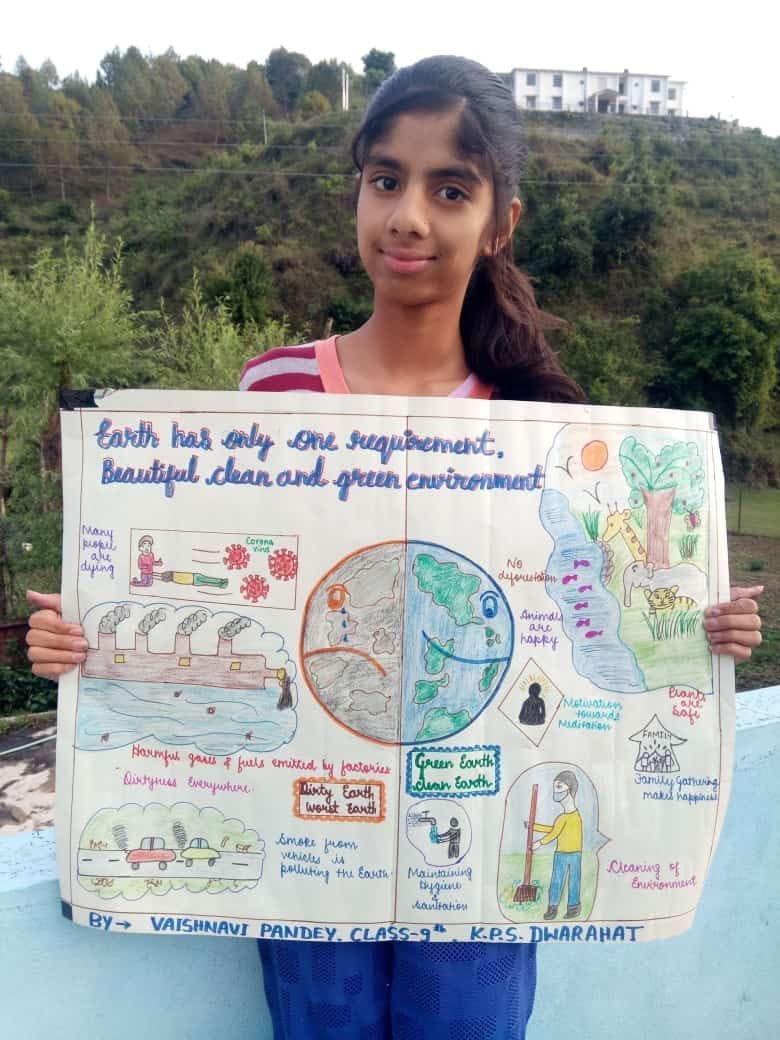 Earth has only one requirement,
Beautiful clean and green environment
Many
people
are
dying
Corona
virus
No
deforestation
Animals
are
happy
Plants
are
Safe
Motivation
towards
Meditation
FAMILY
Family Gathering
makes happiness
Harmful gases & fuels emitted by factories
Dirtyness Everywhere.
Dirty Earth
Worst Earth
Green Earth
Clean Earth
Smoke from
vehicles is
polluting the Earth.
Maintaining
hygiene
&
sanitation
Cleaning of
Environment
BY→ VAISHNAVI PANDEY. CLASS-9th, K.P.S. DWARAHAT